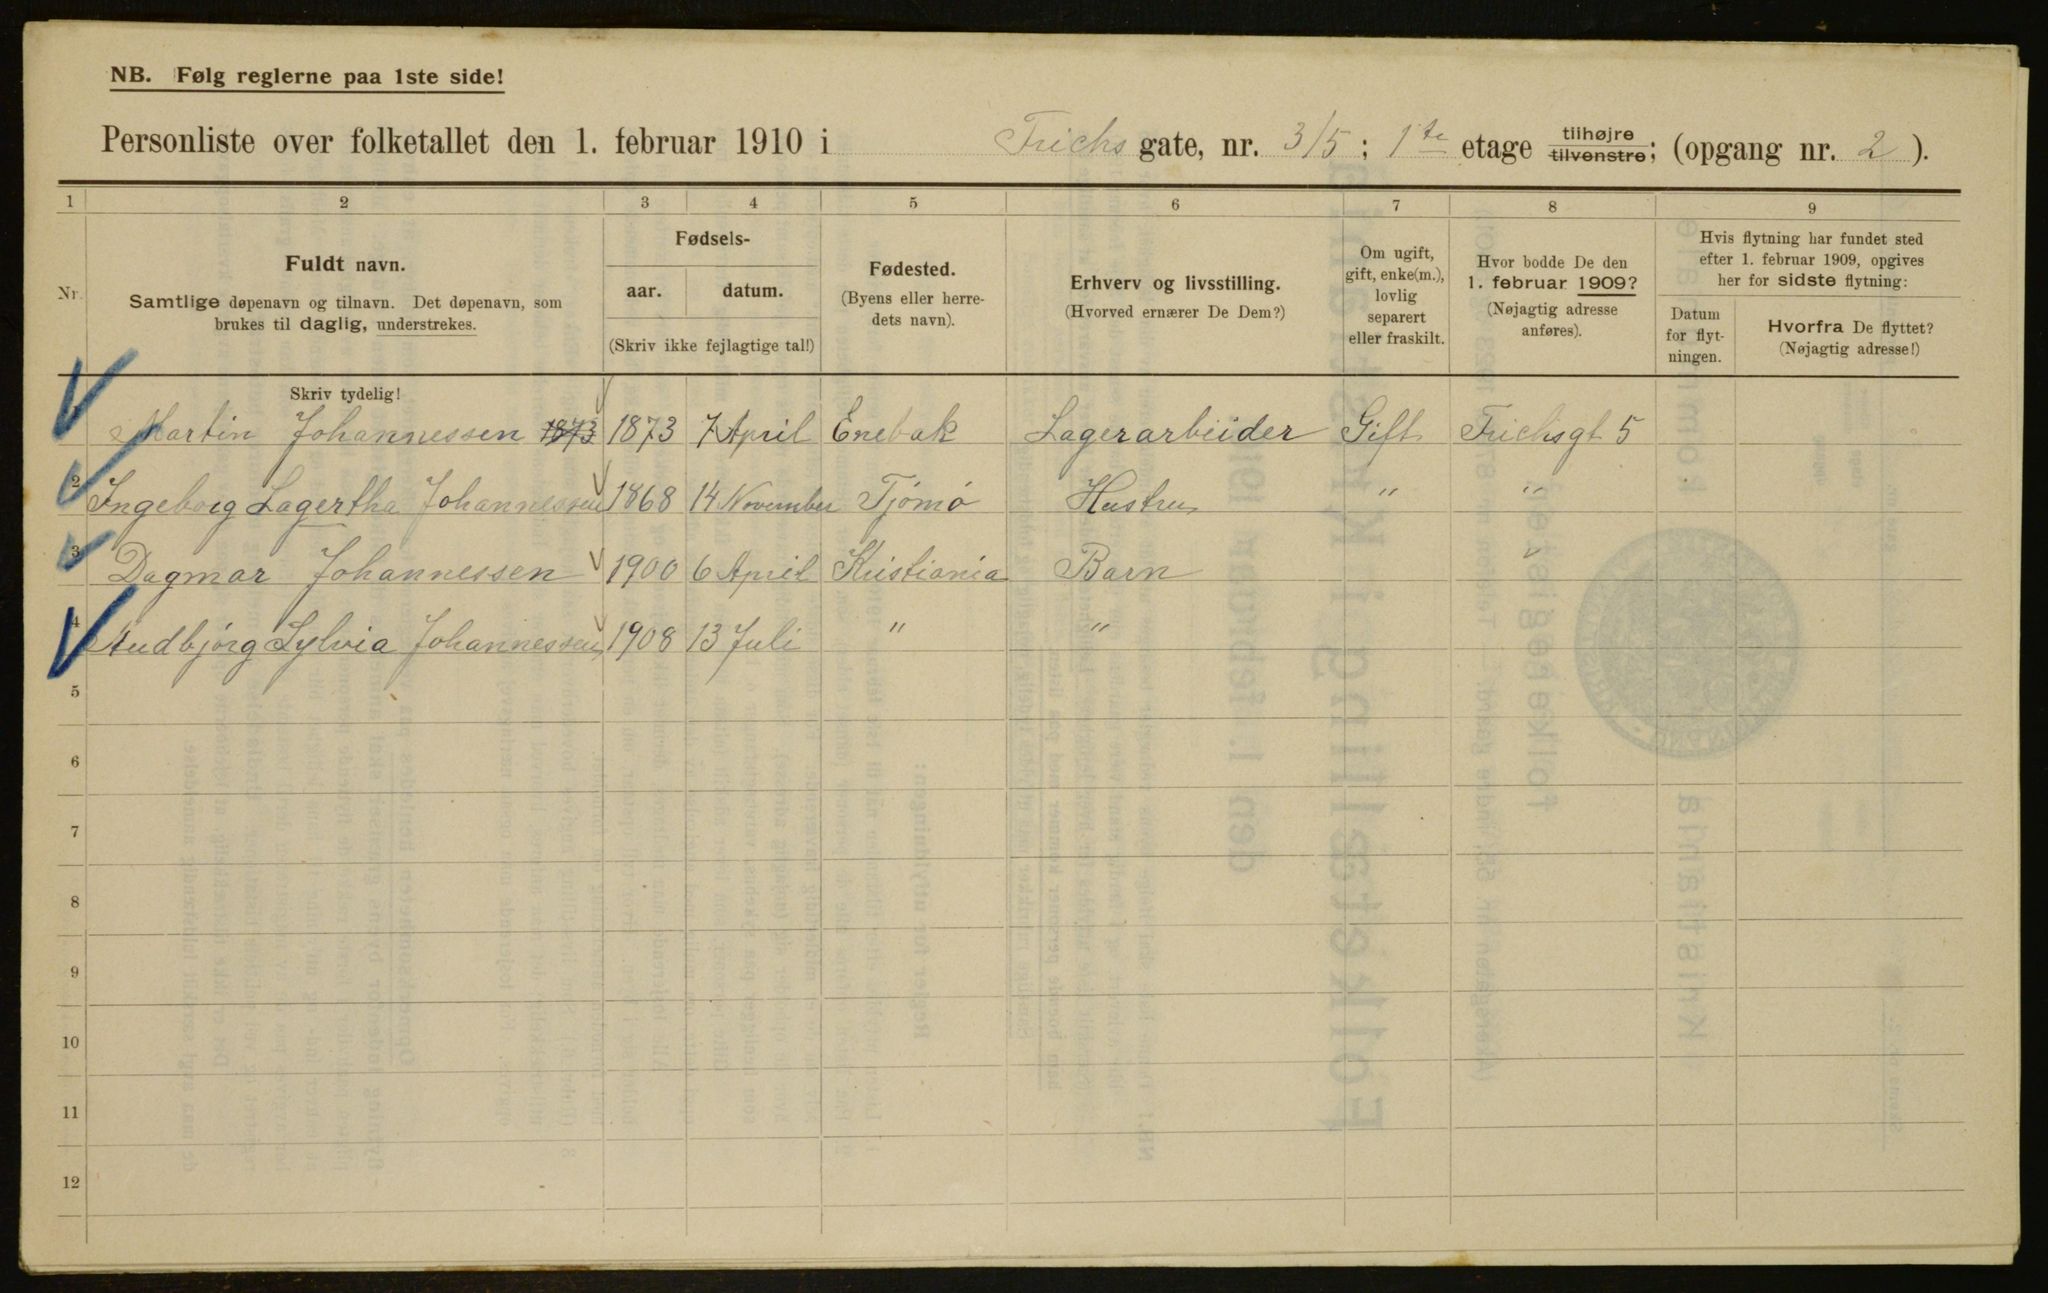 NB. Følg reglerne paa 1ste side!
Personliste over folketallet den 1. februar 1910 i Frichs gate, nr. 3/5 ; 1te etage tilhøjre tilvenstre; (opgang nr. 2 ).
1 2 3 4 5 6 7 8 9
Nr.
Fuldt navn.
Samtlige døpenavn og tilnavn. Det døpenavn, som
brukes til daglig, understrekes.
Fødsels-
aar. datum.
(Skriv ikke fejlagtige tal!)
Fødested.
(Byens eller herre-
dets navn).
Erhverv og livsstilling.
(Hvorved ernærer De Dem?)
Om ugift,
gift, enke(m.),
lovlig
separert
eller fraskilt.
Hvor bodde De den
1. februar 1909?
(Nøjagtig adresse
anføres).
Hvis flytning har fundet sted
efter 1. februar 1909, opgives
her for sidste flytning:
Datum
for flyt-
ningen.
Hvorfra De flyttet?
(Nøjagtig adresse!)
Skriv tydelig!
Martin Johannessen 1873 1873 7 April Enebak Lagerarbeider Gift Frichsgt 5
2 Ingeborg Lagertha Johannessen 1868 14 November Tjömö Hustru " "
3 Dagmar Johannessen 1900 6 April Kristiania Barn "
4 Audbjörg Sylvia Johannessen 1908 13 Juli " "
5
6
7
8
9
10
11
12